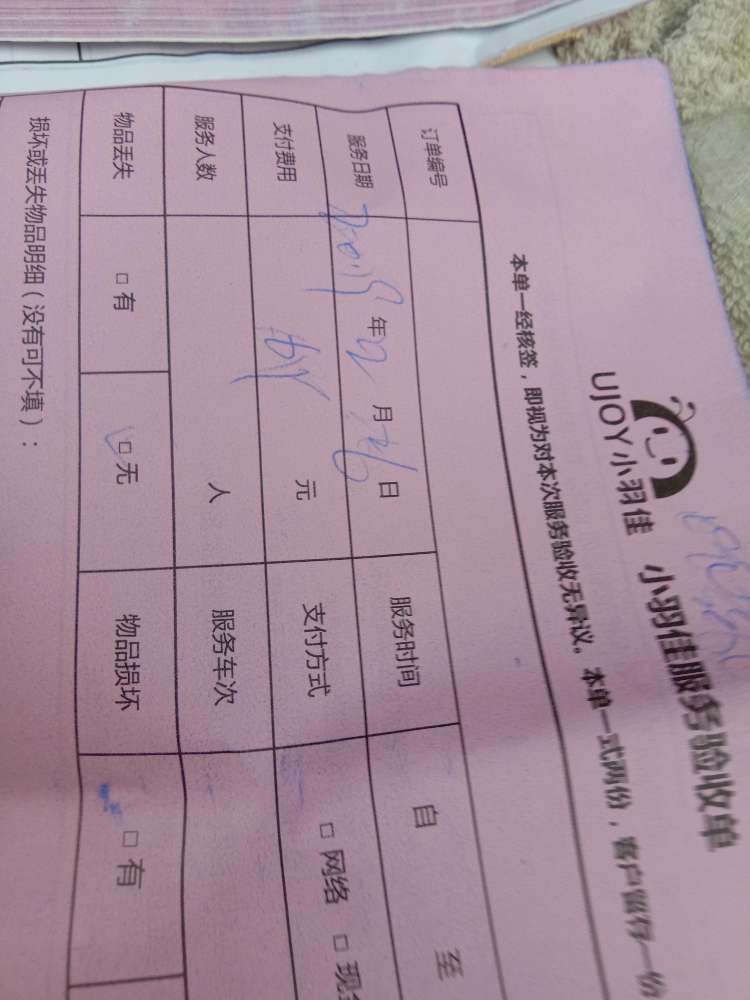 UJOY小羽佳 小羽佳服务验收单
本单一经核签，即视为对本次服务验收无异议。本单一式两份，客户留存一份
订单编号
服务日期 年 2 月 26 日 服务时间 自 至
支付费用 元 支付方式 □ 网络 □ 现
服务人数 人 服务车次
物品丢失 □ 有 □ 无 物品损坏 □ 有
损坏或丢失物品明细（没有可不填）：